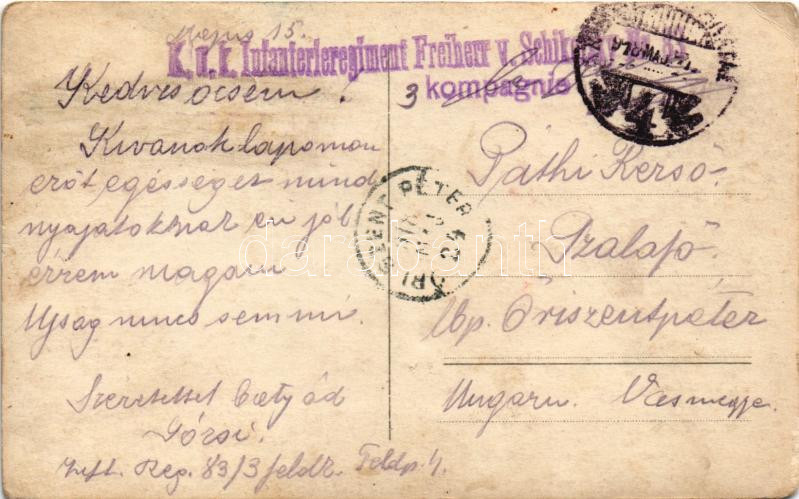 Majus 15.
K. u. k. Infanterieregiment Freiherr v. Schik Nr. 83
3 kompagnie
918 MAJ
4
Kedves öcsém!
Kivanok lapomon
erőt egésséget mind
nyajatoknak én jól
érzem magam
Ujsag nincs semmi.
Szeretettel batyád
Józsi.
Inft. Reg. 83/3 feldk. Feldp. 4.
ŐRI SZENT PÉTER
918 MÁJ
24
Páthi Kersó
Szalafő
Up. Őriszentpéter
Ungarn. Vasmegye.
darabanth